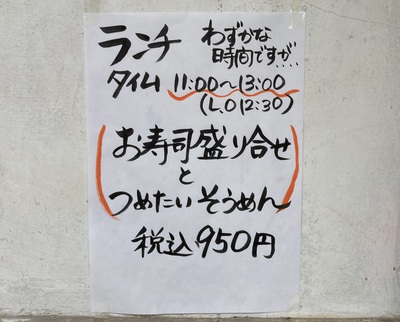 ランチ わずかな
時間ですが...
タイム 11:00～13:00
(L.O 12:30)
お寿司盛り合せ
と
つめたいそうめん
税込950円